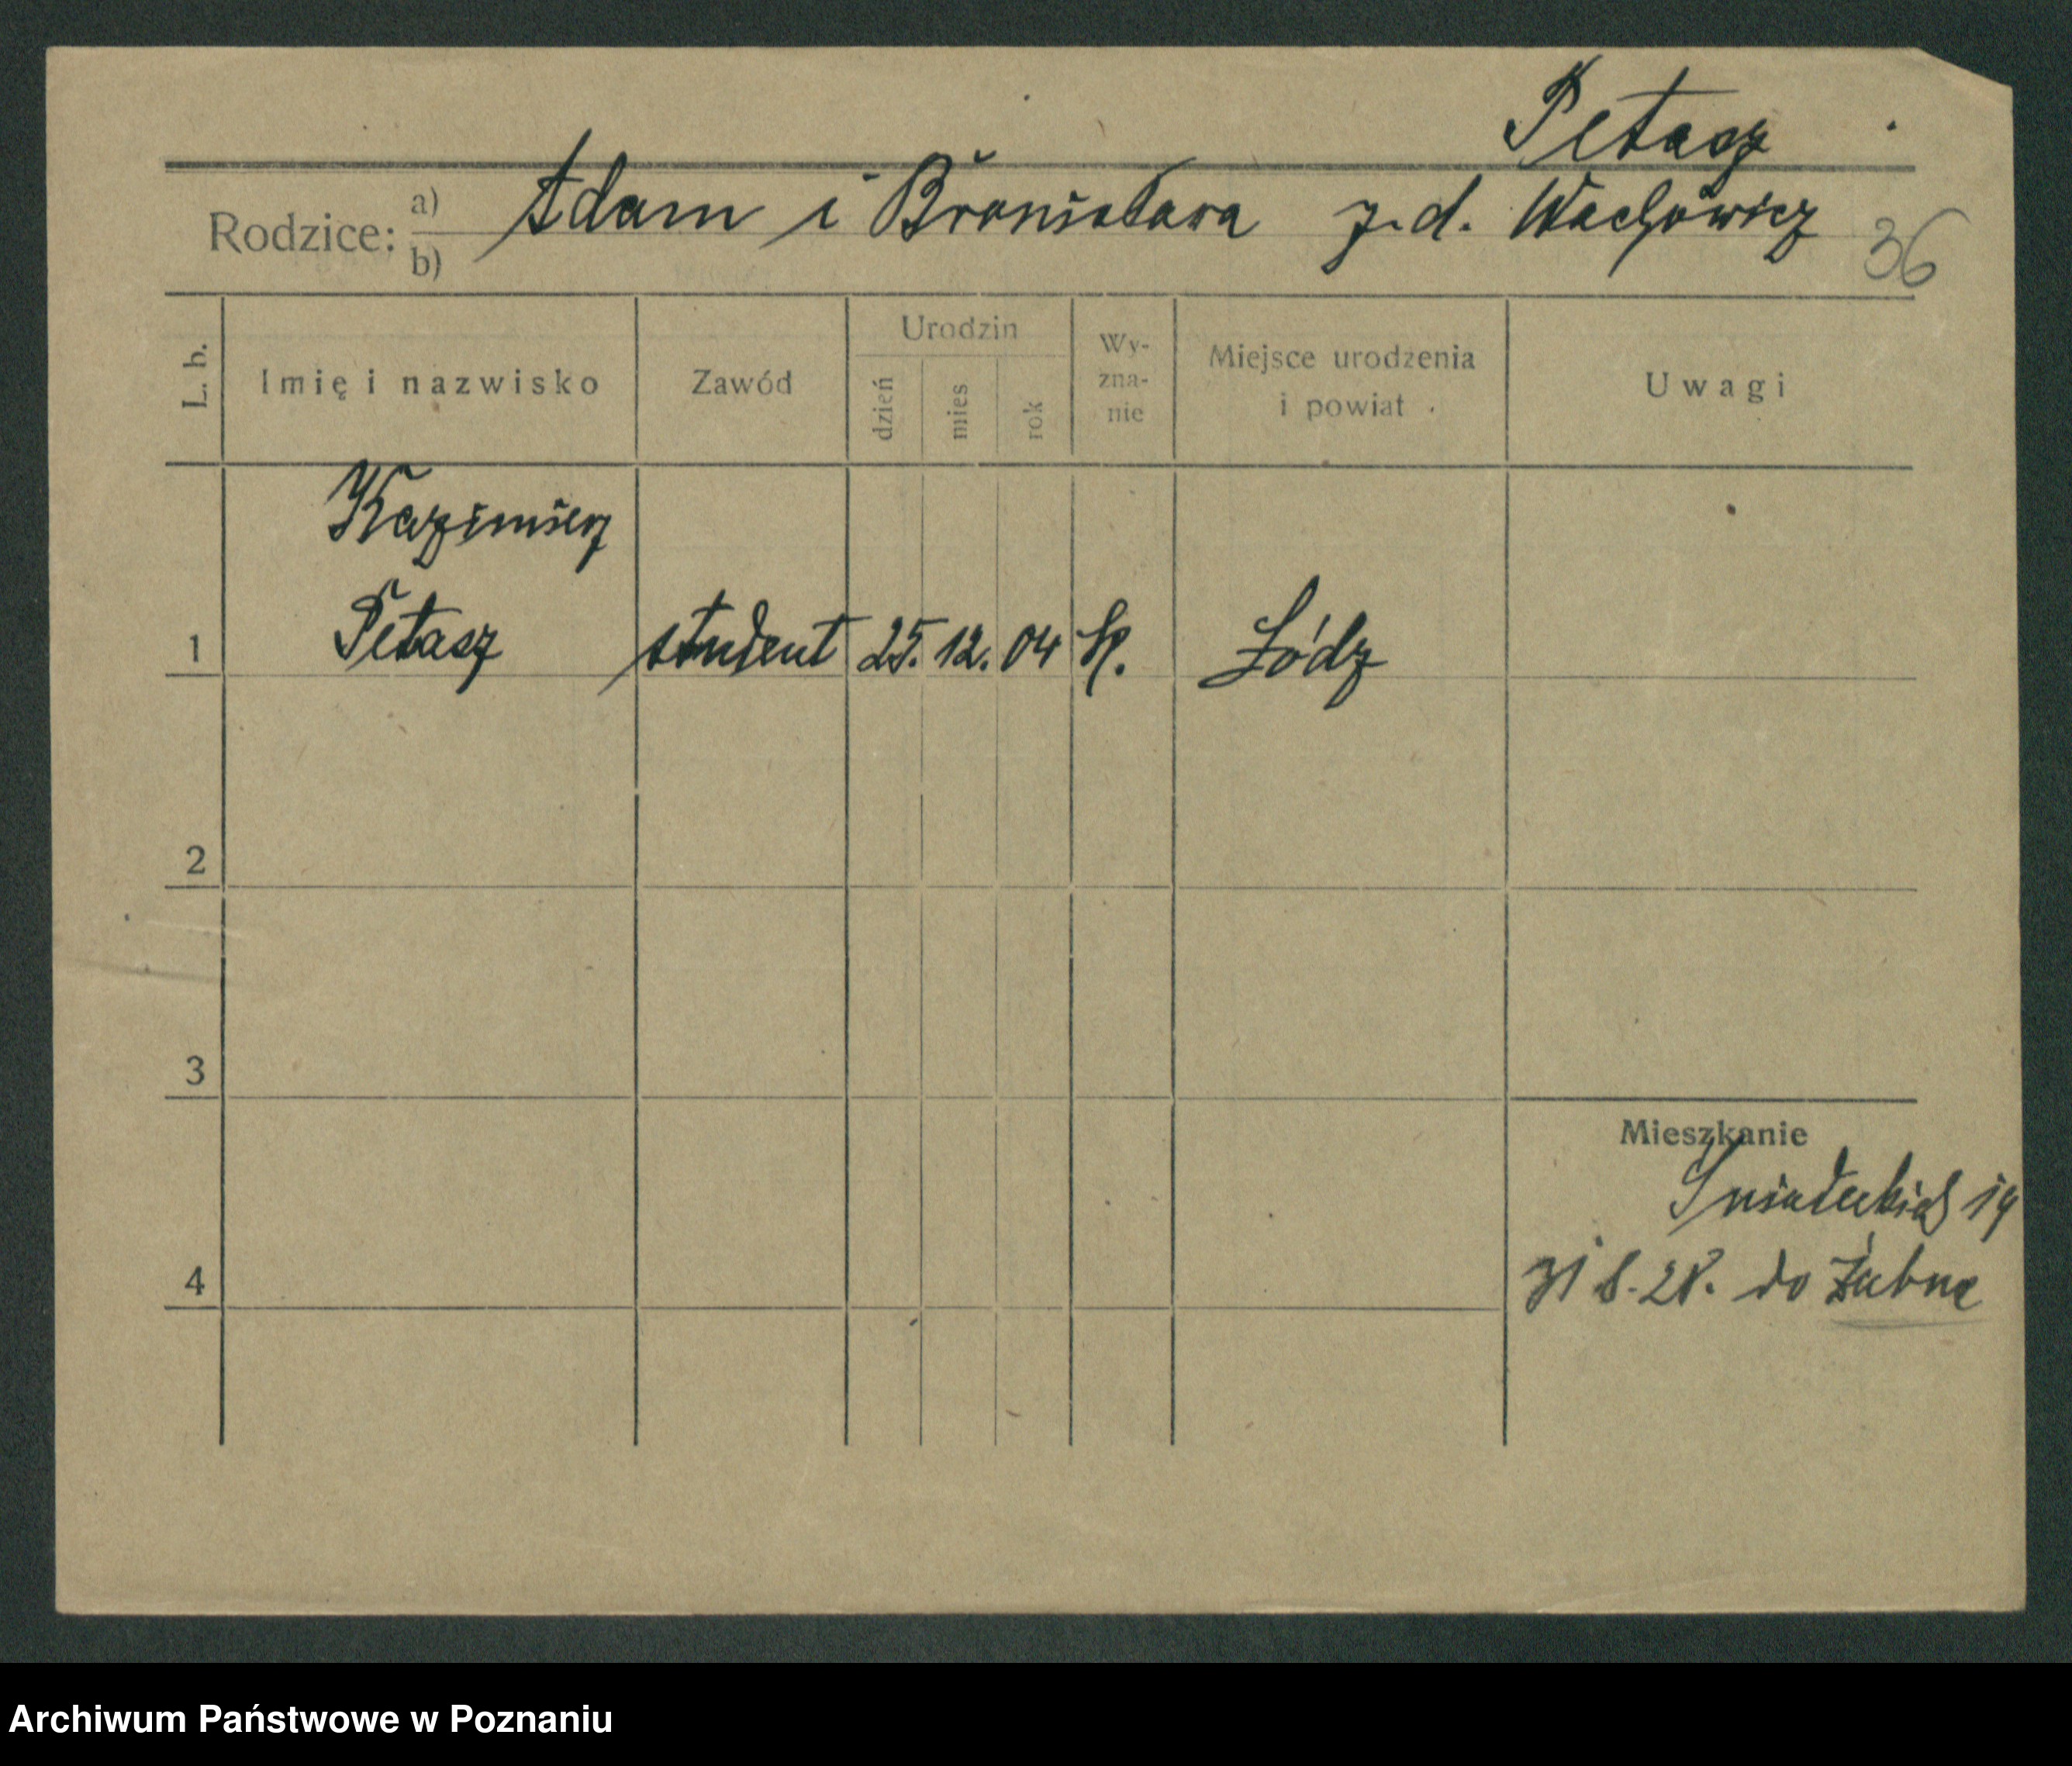 Petasz
Rodzice: a) Adam i Bronisława z. d. Wachowicz
b)
36
L. b. Imię i nazwisko Zawód Urodzin dzień mies rok Wy-zna-nie Miejsce urodzenia i powiat Uwagi
Kazimierz
1 Petasz student 25. 12. 04 k. Łódz
2
3
Mieszkanie
Sniadeckich 19
4 31 8. 28. do
Archiwum Państwowe w Poznaniu